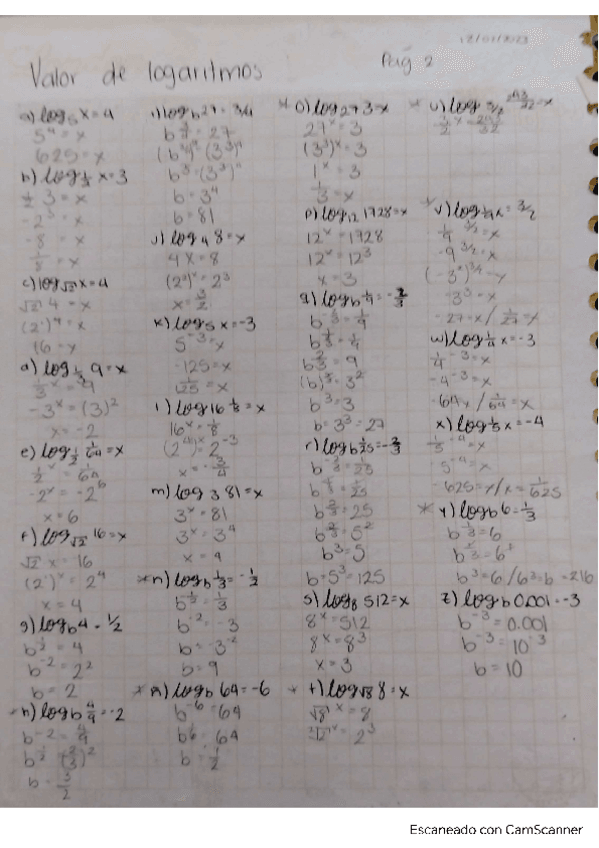 12/07/2023
Valor de logaritmos
Pág 2
a) log₅x=4
5⁴=x
625=x
b) log½x=3
½3=x
-2³=x
-8=x
⅛=x
c) log√2x=4
√2 4=x
16=x
d) log⅓9=x
⅓ˣ=9
-3ˣ=(3)²
x=-2
e) log½ 1/64=x
½ˣ=1/64
-2ˣ=-2⁶
x=6
f) log√2 16=x
√2 x=16
(2)ˣ=2⁴
x=4
g) log b4=1/2
b½=4
b⁻²=2²
b=2
h) log b 4/9=-2
b⁻²=4/9
b=3/2
i) log b27=3/4
b¾=27
b³=(3³)⁴
b=3⁴
b=81
j) log₄8=x
4x=8
(2²)ˣ=2³
x=3/2
k) log₅x=-3
5⁻³=x
-125=x
1/125=x
l) log16 ⅛=x
16ˣ=⅛
(2⁴)ˣ=2⁻³
x=-3/4
m) log₃81=x
3ˣ=81
3ˣ=3⁴
x=4
n) log b ⅓=-½
b-½=⅓
b⁻²=-3
b=-3⁻²
b=9
ñ) log b 64=-6
b⁻⁶=64
b6=64
b=½
o) log27 3=x
27ˣ=3
(3³)ˣ=3
1ˣ=3
⅓=x
p) log12 1728=x
12ˣ=1728
12ˣ=12³
x=3
q) log b ¼=-⅔
b-⅔=¼
b⅔=9
(b)²=3²
b³=3
b=3³=27
r) log b 1/25=-⅔
b-⅔=1/25
b⅔=25
b⅔=5²
b³=5
b=5³=125
s) log₈ 512=x
8ˣ=512
8ˣ=8³
x=3
t) log√8 8=x
√8ˣ=8
u) log 3/2 243/32=x
3/2 x=243/32
v) log 1/9 x=3/2
1/9 3/2=x
-9 3/2=x
-3³=x
-27=x/1/27=x
w) log¼x=-3
¼⁻³=x
-4⁻³=x
-64x/1/64=x
x) log⅕x=-4
⅕⁻⁴=x
-5⁻⁴=x
-625=x/x=1/625
y) log b6=⅓
b⅓=6
b³=6/6³=b=216
z) log b 0.001=-3
b⁻³=0.001
b⁻³=10⁻³
b=10
Escaneado con CamScanner